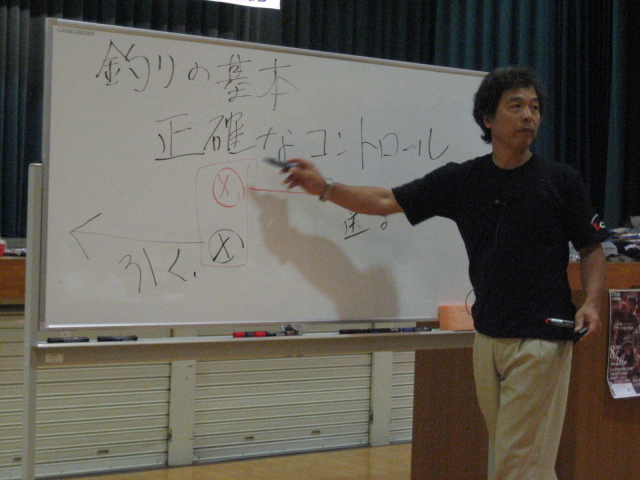 釣りの基本
正確なコントロール
引く.